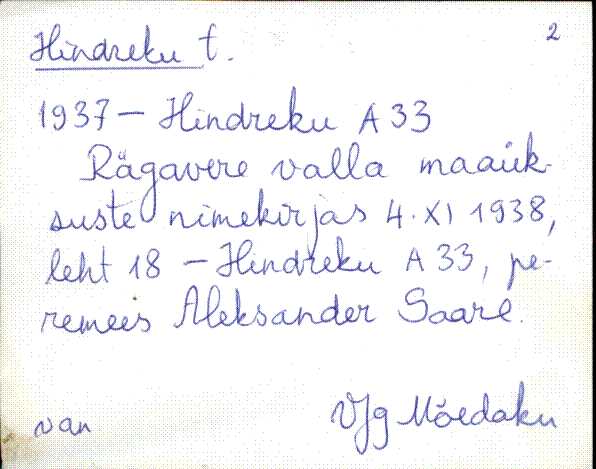 Hindreku t.
2
1937 – Hindreku A 33
Rägavere valla maaük-
suste nimekirjas 4. XI 1938,
leht 18 – Hindreku A 33, pe-
remees Aleksander Saare.
van
VJg Mõedaku